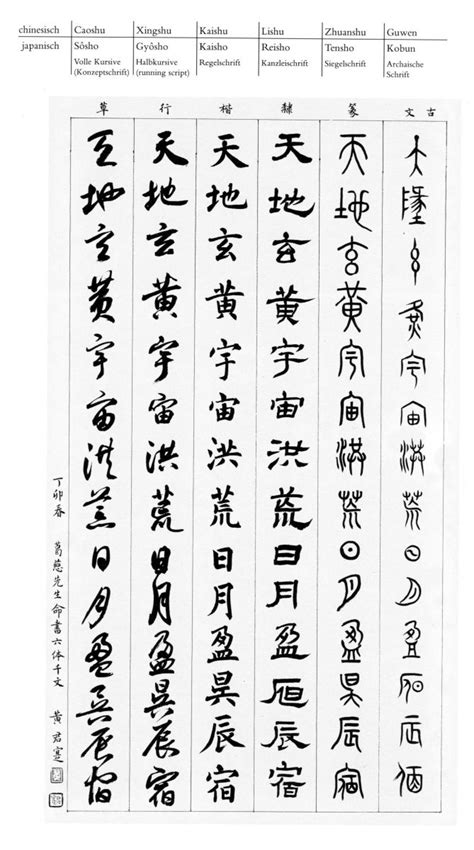 chinesisch Caoshu Xingshu Kaishu Lishu Zhuanshu Guwen
japanisch Sôsho Gyôsho Kaisho Reisho Tensho Kobun
Volle Kursive Halbkursive Regelschrift Kanzleischrift Siegelschrift Archaische
(Konzeptschrift) (running script) Schrift
古文
天地玄黄宇宙洪荒日月盈昃辰宿
篆
天地玄黄宇宙洪荒日月盈昃辰宿
隸
天地玄黄宇宙洪荒日月盈昃辰宿
楷
天地玄黄宇宙洪荒日月盈昃辰宿
行
天地玄黄宇宙洪荒日月盈昃辰宿
草
天地玄黄宇宙洪荒日月盈昃辰宿
丁卯春 葛慈先生命書六体千文 黄君寔